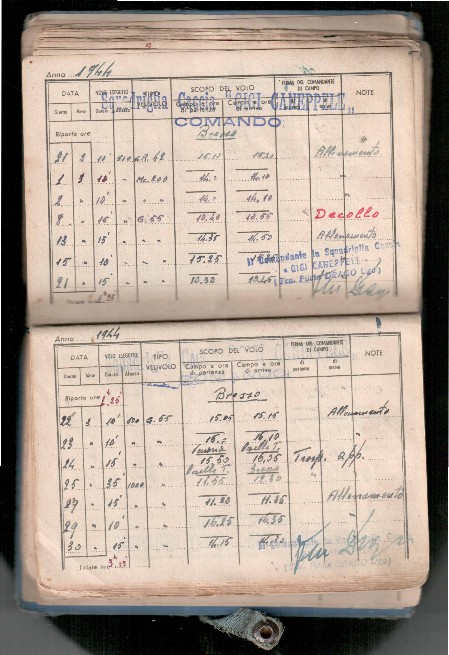 Anno 1944
DATA VOLO ESEGUITO TIPO VELIVOLO SCOPO DEL VOLO FIRMA DEL COMANDANTE DI CAMPO NOTE
Giorno Mese Durata Altezza Campo e ora di partenza Campo e ora di arrivo
Squadriglia Caccia "GIGI CANEPPELE"
COMANDO
Riporto ore Bresso
21 2 10' 500 G.R. 42 15.10 15.20 Allenamento
1 3 10' " Mc. 200 14.= 14.10 "
2 " 10' " " " 14.= 14.10 "
8 " 15' " G. 55 10.40 10.55 Decollo
13 " 15' " " " 14.35 14.50 Allenamento
15 " 10' " " " 15.25
21 " 15' " " " 10.30 10.45
Il Comandante la Squadriglia Caccia
"GIGI CANEPPELE"
(Ten. Pilota DRAGO Ugo)
Anno 1944
DATA VOLO ESEGUITO TIPO VELIVOLO SCOPO DEL VOLO FIRMA DEL COMANDANTE DI CAMPO NOTE
Giorno Mese Durata Altezza Campo e ora di partenza Campo e ora di arrivo di partenza arrivo
Riporto ore 1.25 Bresso
22 3 10' 500 G. 55 15.05 15.15 Allenamento
23 " 10' " " " 16.= 16.10 "
24 " 15' " " " 15.50 16.05 Trasf. app.
25 " 35 1000 " " 11.55 12.30 "
27 " 15' " " " 11.20 11.35 Allenamento
29 " 10' " " " 16.25 16.35 "
30 " 15' " " " 14.15 14.30
Totale ore 3.15